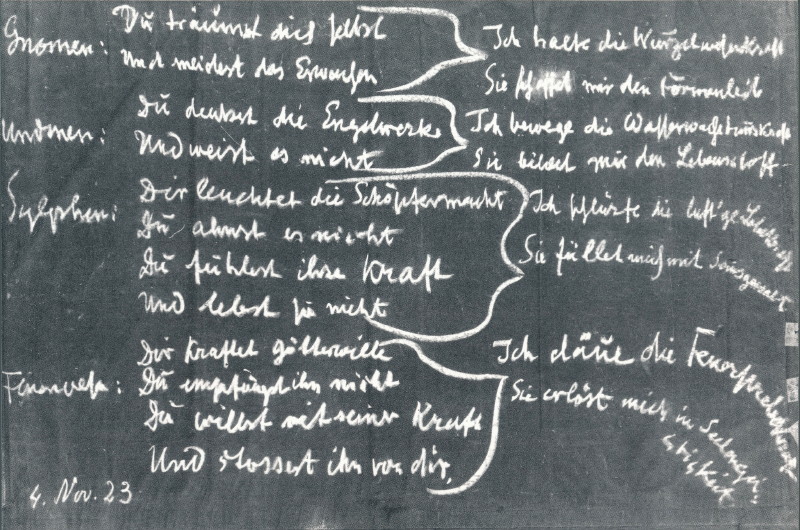 Gnomen: Du träumst dich selbst
Und meidest das Erwachen
Ich halte die Wurzelwesenskraft
Sie schaffet mir den Formenleib
Undinen: Du denkst die Engelwerke
Und weist es nicht
Ich bewege die Wasserwachstumskraft
Sie bildet mir den Lebensstoff
Sylphen: Dir leuchtet die Schöpfermacht
Du ahnst es nicht
Du fühlest ihre Kraft
Und lebst sie nicht
Ich schlürfe die luft'ge Lebekraft
Sie füllet mich mit Seinsgewalt
Feuerwesen: Dir kraftet Götterwille
Du empfängst ihn nicht
Du willst mit seiner Kraft
Und stossest ihn von dir.
Ich däue die Feuerstrebekraft
Sie erlöst mich in Seelengei-
stigkeit
4. Nov. 23